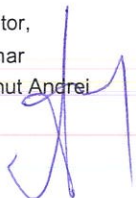 tor,
nar
nut Andrei